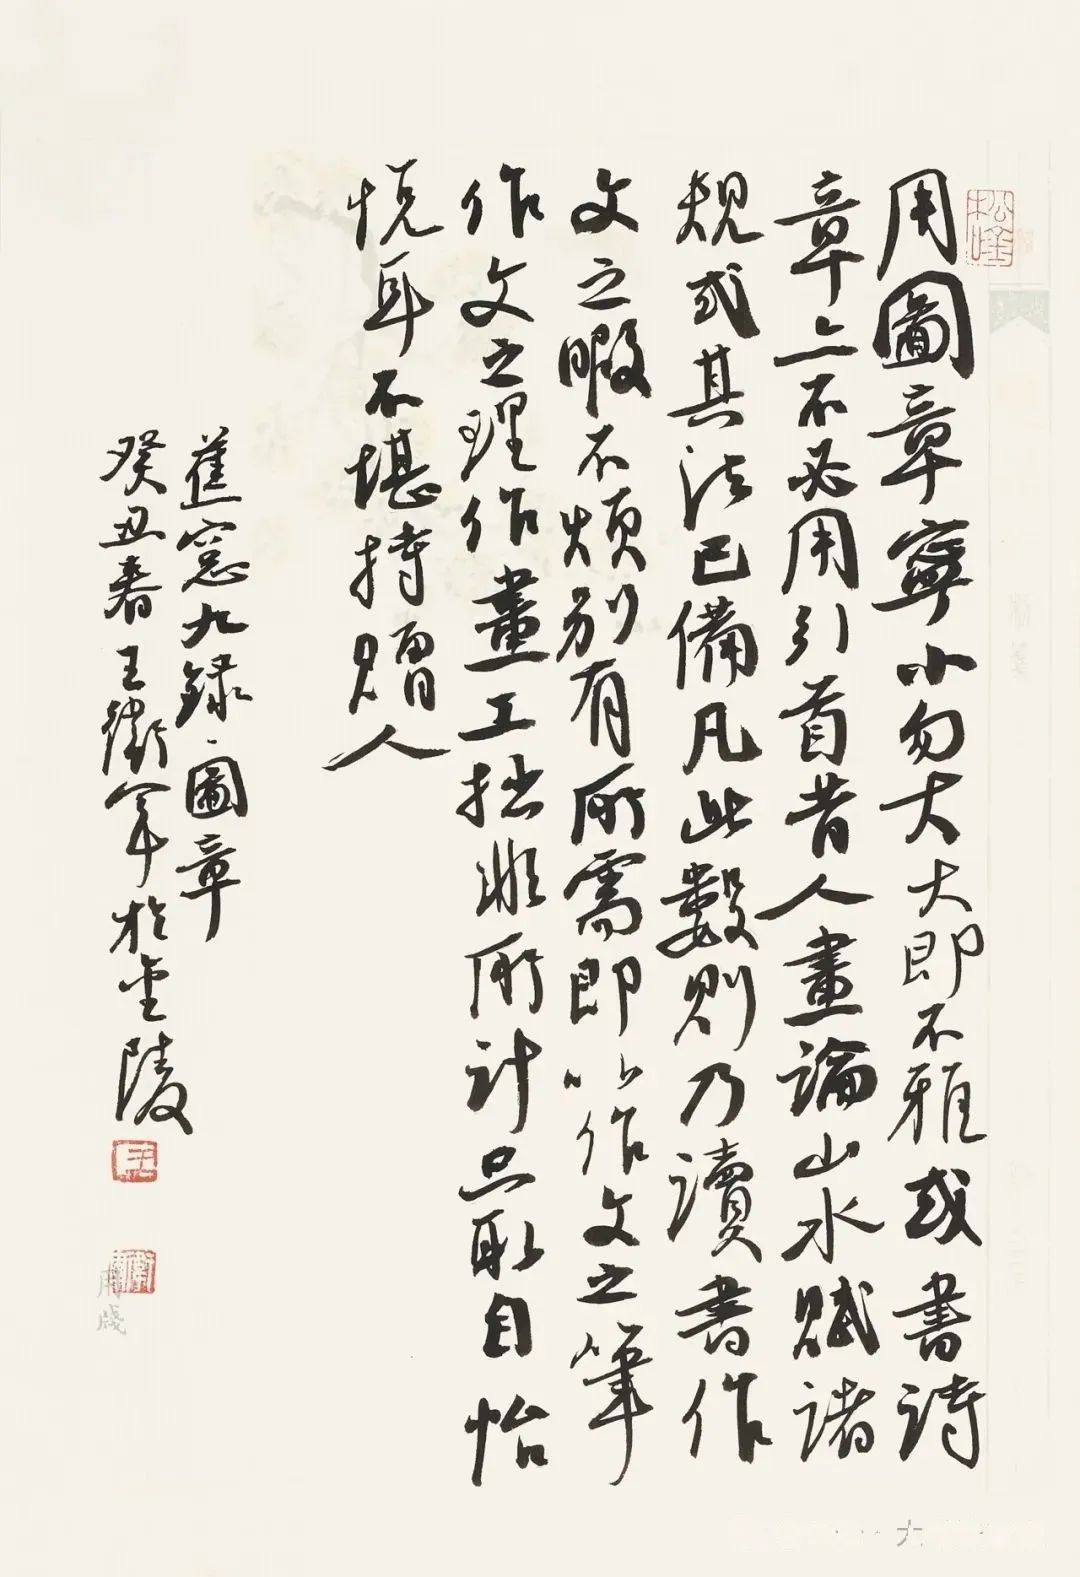 用圖章寧小勿大大即不雅或書詩
章亦不必用引首昔人畫論山水賦諸
規式其法已備凡此數則乃讀書作
文之暇不煩別有所需即以作文之筆
作文之理作畫工拙非所計只取自怡
悅耳不堪持贈人
蕉窓九録圖章
癸丑春王衛軍於金陵
用牋